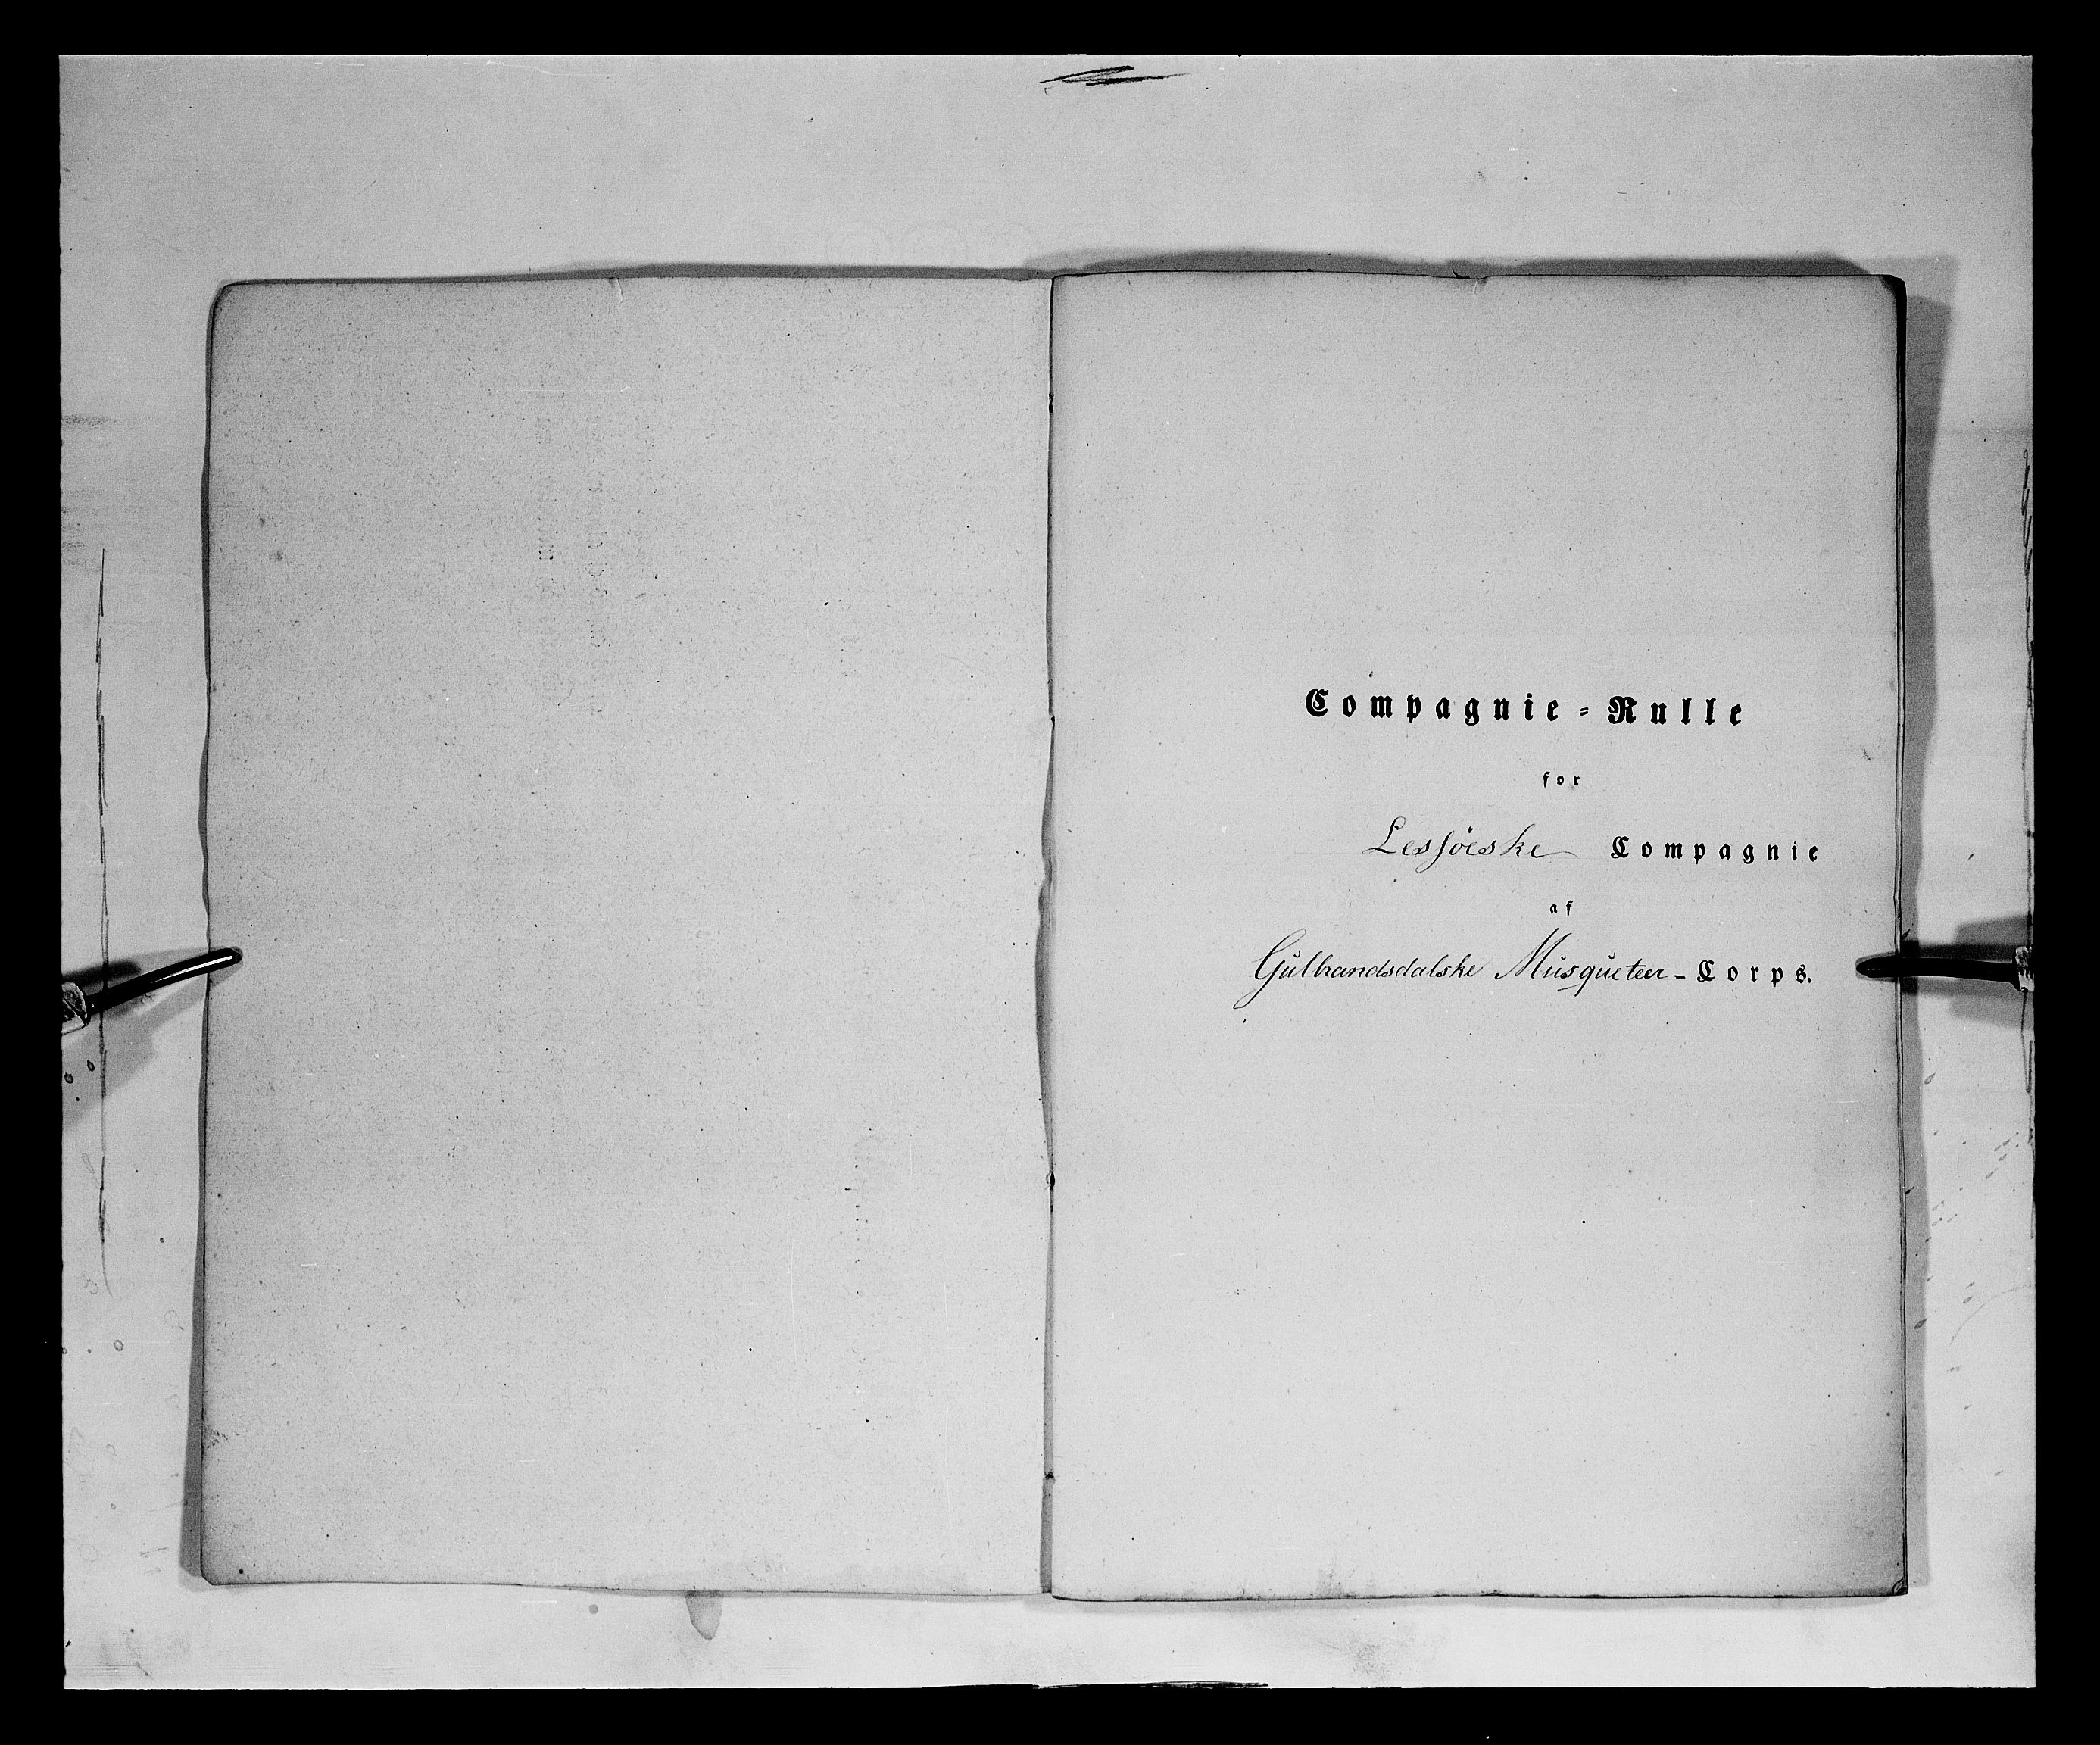 Compagnie-Rulle
for
Lessöeske Compagnie
af
Gulbrandsdalske Musqueteer-Corps.